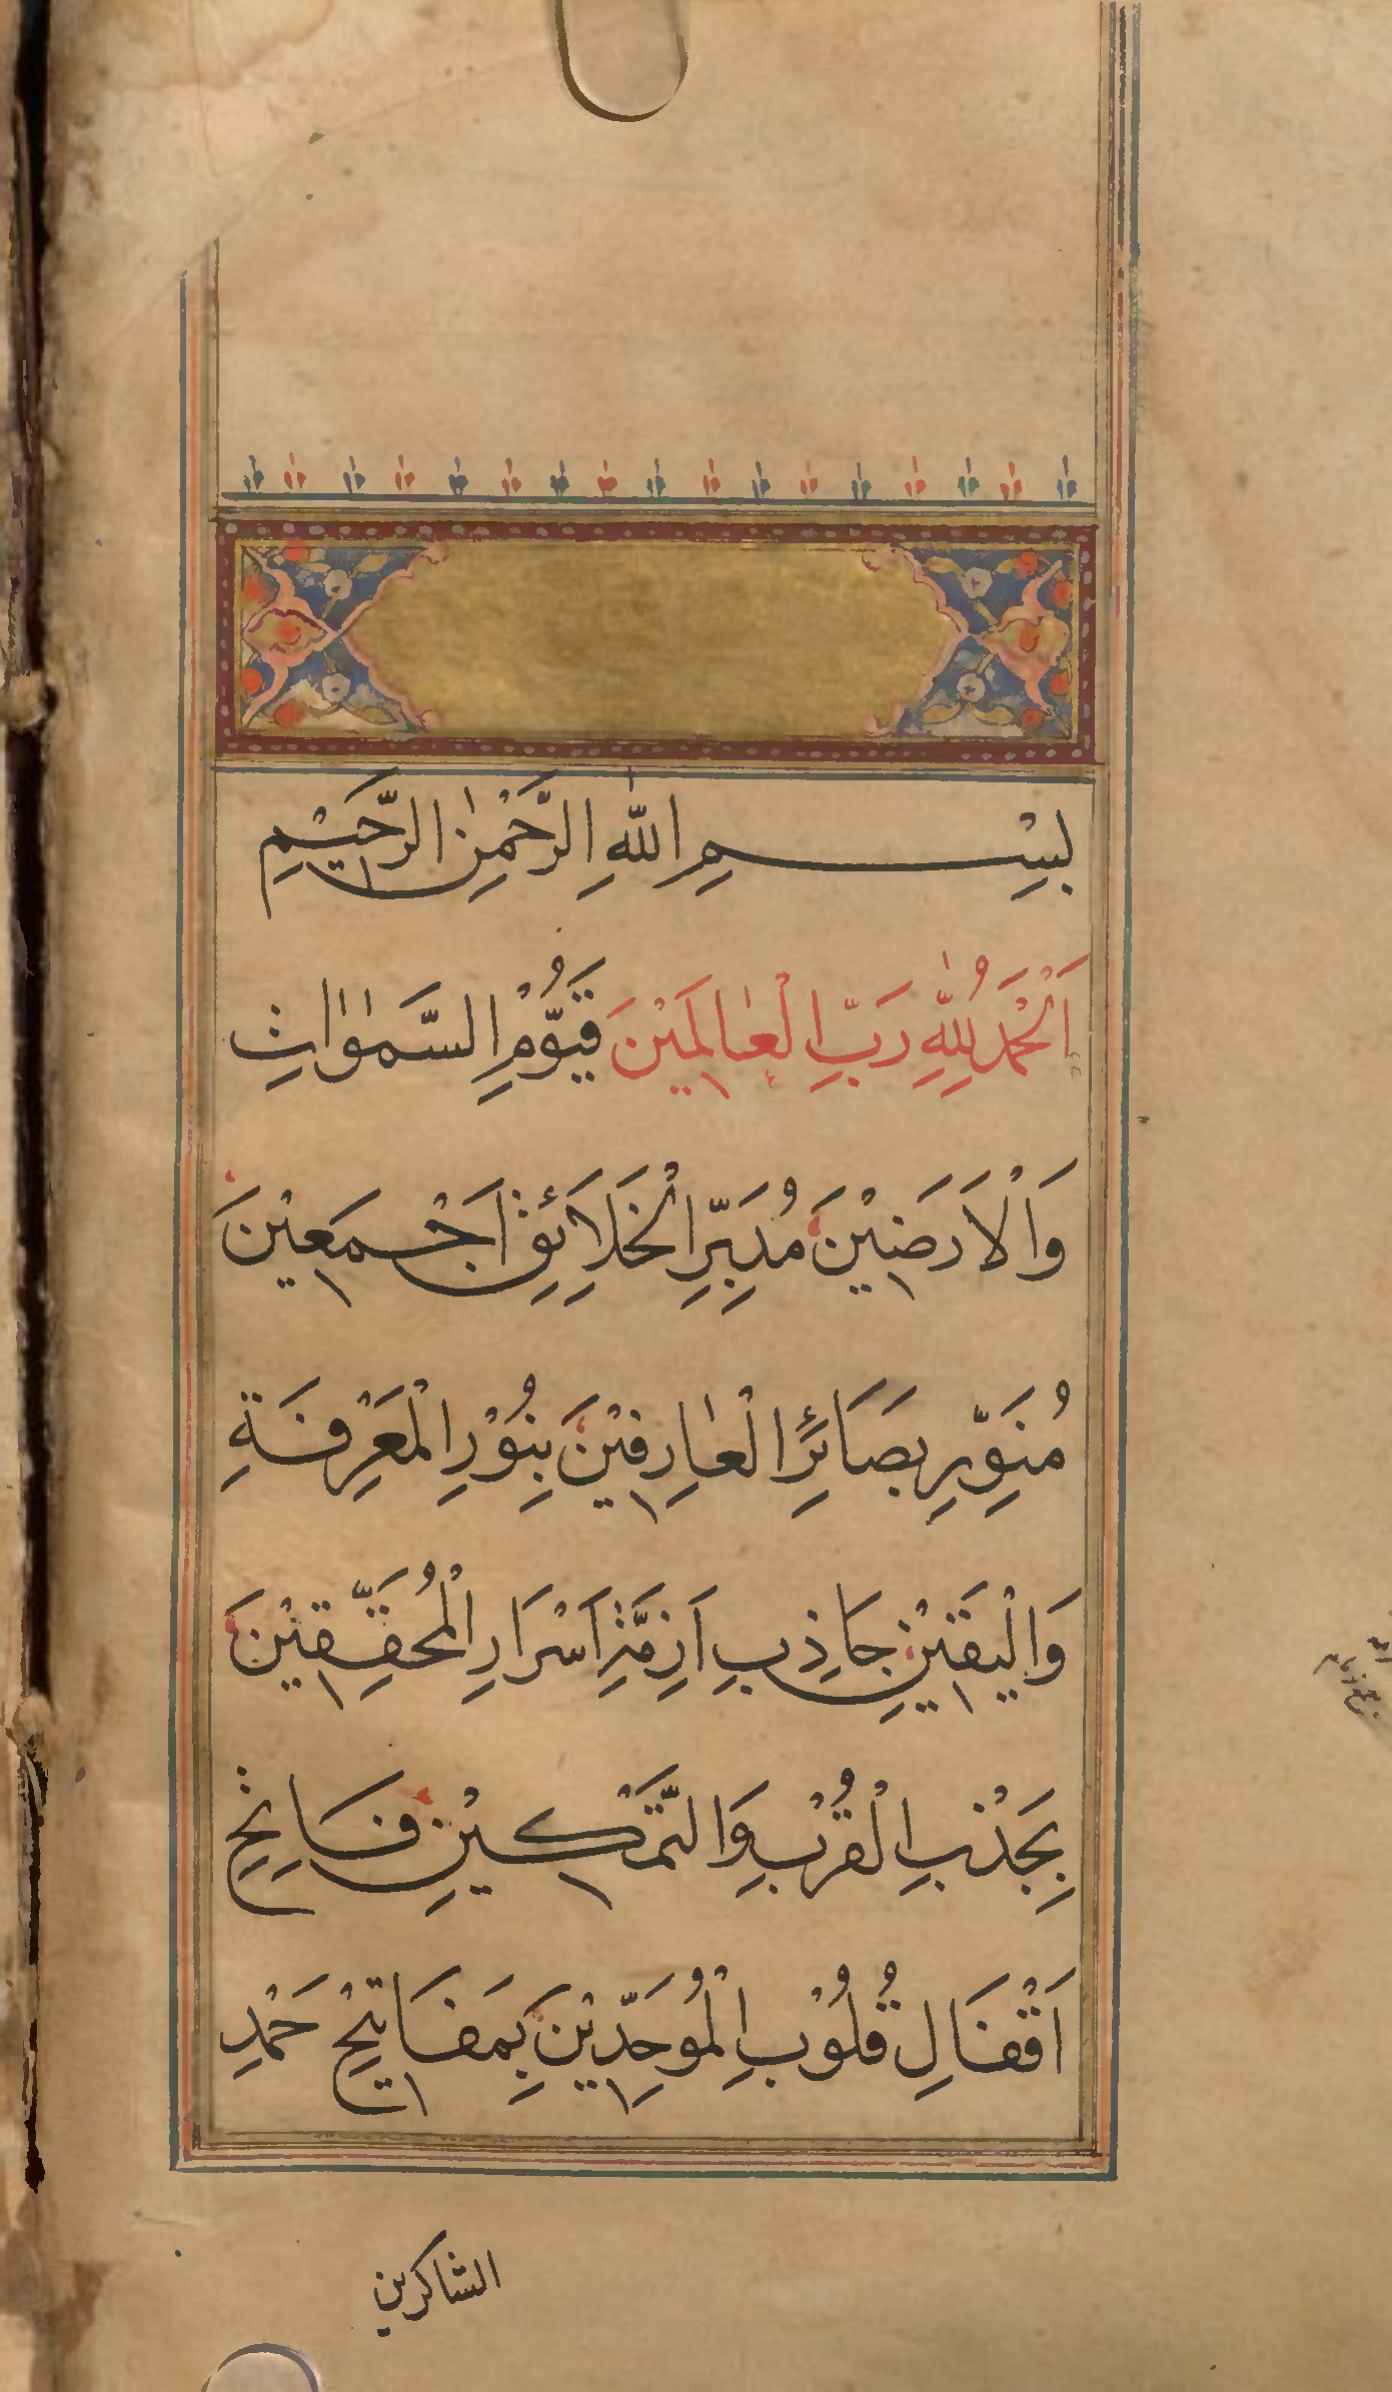 بِسْمِ اللّٰهِ الرَّحْمٰنِ الرَّحِيْمِ
اَلْحَمْدُ لِلّٰهِ رَبِّ الْعٰالَمِيْنَ قَيُّوْمِ السَّمٰوٰاتِ
وَالْاَرَضِيْنَ مُدَبِّرِ الْخَلَائِقِ اَجْمَعِيْنَ
مُنَوِّرِ بَصَائِرِ الْعٰارِفِيْنَ بِنُوْرِ الْمَعْرِفَةِ
وَالْيَقَيْنِ جَاذِبِ اَزِمَّةِ اَسْرَارِ الْمُحَقِّقِيْنَ
بِجَذْبِ الْقُرْبِ وَالتَّمْكِيْنِ فَاتِحِ
اَقْفَالِ قُلُوْبِ الْمُوَحِّدِيْنَ بِمَفَاتِيْحِ حَمْدِ
الشاكرين